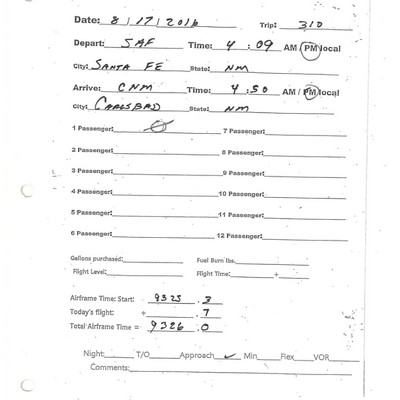 Date: 8 / 17 / 2016 Trip: 310
Depart: SAF Time: 4 : 09 AM / PM local
City: SANTA FE State: NM
Arrive: CNM Time: 4 : 50 AM / PM local
City: CARLSBAD State: NM
1 Passenger: 0 7 Passenger:
2 Passenger: 8 Passenger:
3 Passenger: 9 Passenger:
4 Passenger: 10 Passenger:
5 Passenger: 11 Passenger:
6 Passenger: 12 Passenger:
Gallons purchased: Fuel Burn lbs.
Flight Level: Flight Time: +
Airframe Time: Start: 9325 . 3
Today's flight: + . 7
Total Airframe Time = 9326 . 0
Night: T/O Approach ✓ Min Flex VOR
Comments: